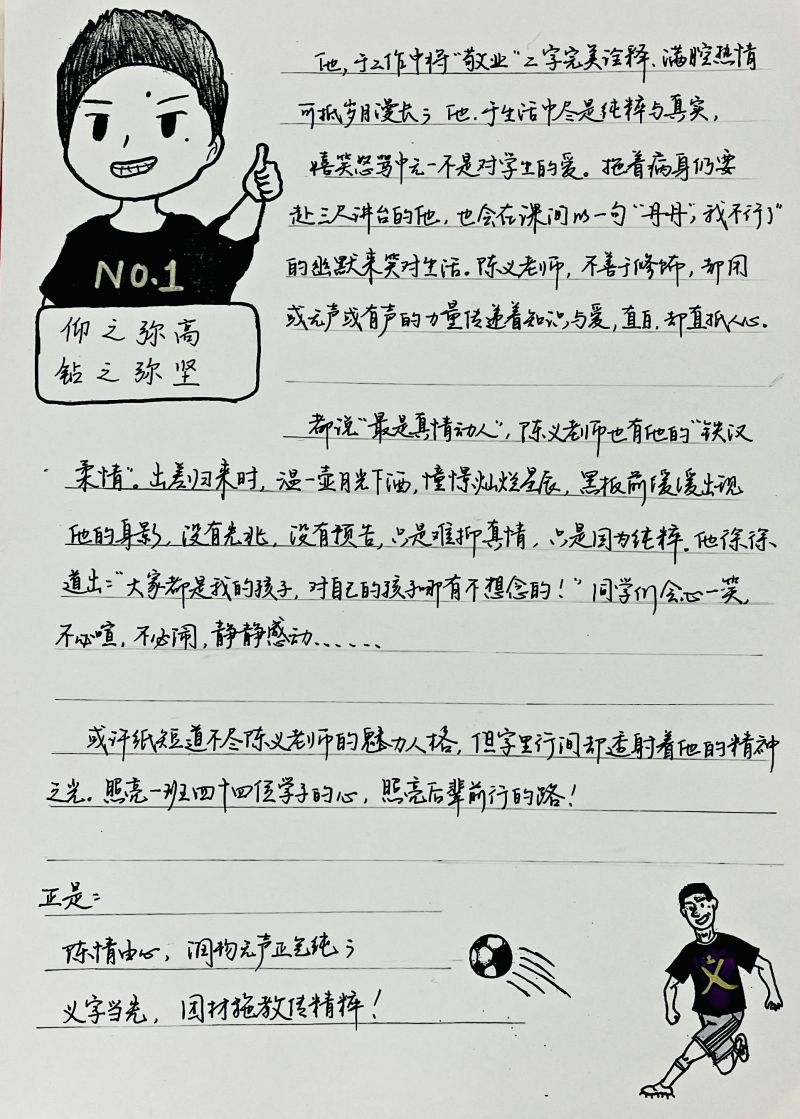 他,于工作中将“敬业”二字完美诠释、满腔热情
可抵岁月漫长;他.于生活中尽是纯粹与真实,
嬉笑怒骂中无一不是对学生的爱。拖着病身仍要
赴三尺讲台的他,也会在课间以一句“丹丹,我不行了”
的幽默来笑对生活。陈义老师,不善于修饰,却用
或无声或有声的力量传递着知识与爱,直白,却直抵人心.
NO.1
仰之弥高
钻之弥坚
都说“最是真情动人”,陈义老师也有他的“铁汉
柔情”。出差归来时,温一壶月光下酒,憧憬灿烂星辰,黑板前缓缓出现
他的身影,没有先兆,没有预告,只是难抑真情,只是因为纯粹.他徐徐
道出:“大家都是我的孩子,对自己的孩子哪有不想念的!”同学们会心一笑,
不必喧,不必闹,静静感动......
或许纸短道不尽陈义老师的魅力人格,但字里行间却透射着他的精神
之光。照亮一班四十四位学子的心,照亮后辈前行的路!
正是:
陈情由心,润物无声正色纯;
义字当先,因材施教传精粹!
义